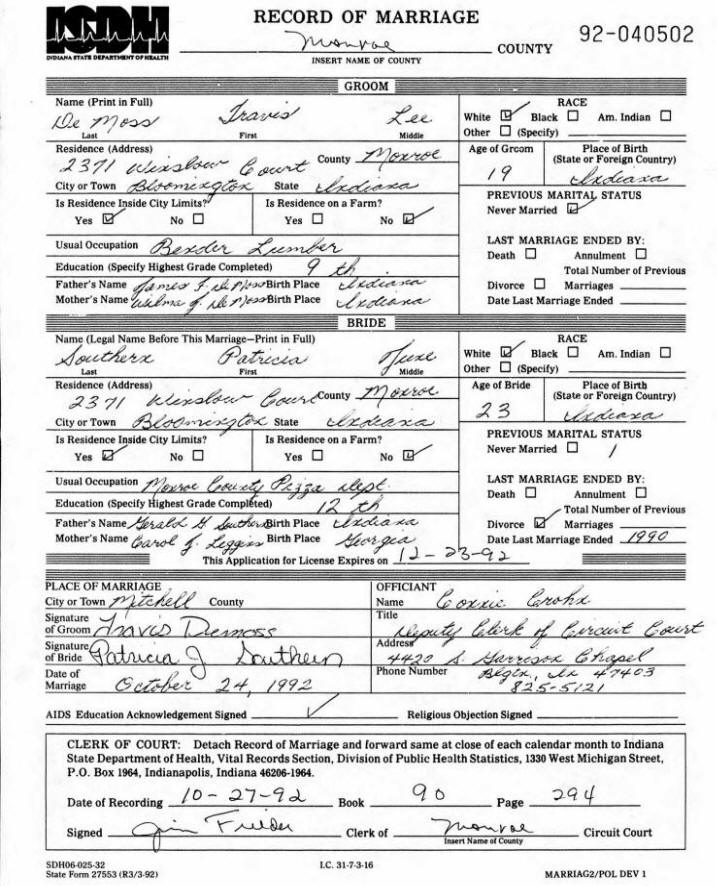 ISDH
INDIANA STATE DEPARTMENT OF HEALTH
RECORD OF MARRIAGE
92-040502
Monroe COUNTY
INSERT NAME OF COUNTY
GROOM
Name (Print in Full)
De Moss Travis Lee
Last First Middle
RACE
White ☑ Black ☐ Am. Indian ☐
Other ☐ (Specify)
Residence (Address)
2371 Winslow Court County Monroe
City or Town Bloomington State Indiana
Age of Groom
19
Place of Birth
(State or Foreign Country)
Indiana
Is Residence Inside City Limits?
Yes ☑ No ☐
Is Residence on a Farm?
Yes ☐ No ☑
PREVIOUS MARITAL STATUS
Never Married ☑
Usual Occupation Bender Lumber
Education (Specify Highest Grade Completed) 9 th
Father's Name James F. DeMoss Birth Place Indiana
Mother's Name Wilma J. DeMoss Birth Place Indiana
LAST MARRIAGE ENDED BY:
Death ☐ Annulment ☐
Total Number of Previous
Divorce ☐ Marriages
Date Last Marriage Ended
BRIDE
Name (Legal Name Before This Marriage—Print in Full)
Southern Patricia June
Last First Middle
RACE
White ☑ Black ☐ Am. Indian ☐
Other ☐ (Specify)
Residence (Address)
2371 Winslow Court County Monroe
City or Town Bloomington State Indiana
Age of Bride
23
Place of Birth
(State or Foreign Country)
Indiana
Is Residence Inside City Limits?
Yes ☑ No ☐
Is Residence on a Farm?
Yes ☐ No ☑
PREVIOUS MARITAL STATUS
Never Married ☐ 1
Usual Occupation Monroe County Pizza Dept.
Education (Specify Highest Grade Completed) 12 th
Father's Name Gerald Southern Birth Place Indiana
Mother's Name Carol J. Leggins Birth Place Georgia
LAST MARRIAGE ENDED BY:
Death ☐ Annulment ☐
Total Number of Previous
Divorce ☑ Marriages
Date Last Marriage Ended 1990
This Application for License Expires on 12-23-92
PLACE OF MARRIAGE
City or Town Mitchell County
Signature
of Groom Travis Demoss
Signature
of Bride Patricia J Southern
Date of
Marriage October 24, 1992
OFFICIANT
Name Connie Crohn
Title
Deputy Clerk of Circuit Court
Address
4420 S. Garrison Chapel
Phone Number Blgtn, In 47403
825-5121
AIDS Education Acknowledgement Signed ✓ Religious Objection Signed
CLERK OF COURT: Detach Record of Marriage and forward same at close of each calendar month to Indiana
State Department of Health, Vital Records Section, Division of Public Health Statistics, 1330 West Michigan Street,
P.O. Box 1964, Indianapolis, Indiana 46206-1964.
Date of Recording 10-27-92 Book 90 Page 294
Signed Jim Fielder Clerk of Monroe Circuit Court
Insert Name of County
SDH06-025-32
State Form 27553 (R3/3-92)
I.C. 31-7-3-16
MARRIAG2/POL DEV 1